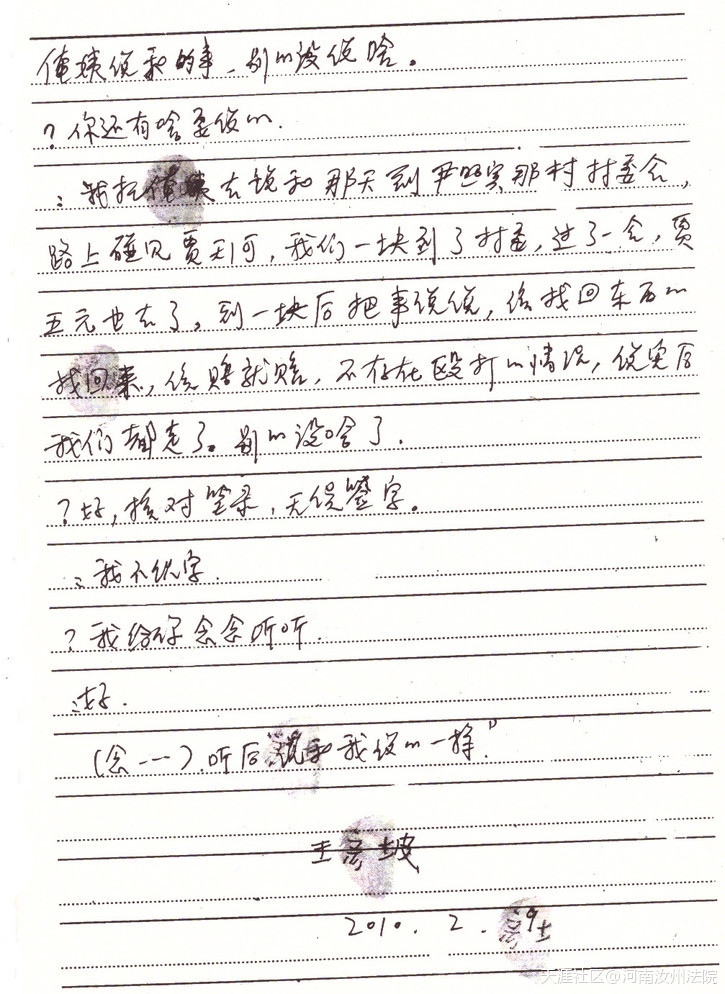 俺姨说和的事，别的没说啥。
？你还有啥要说的.
：我托俺姨去说和那天到尹照实那村村委会，
路上碰见贾天河，我们一块到了村委，过了一会，贾
五元也去了，到一块后把事说说，该找回东西的
找回来，该赔就赔，不存在殴打的情况，说完后
我们都走了。别的没啥了.
？好，核对笔录，无误签字。
：我不识字.
？我给你念念听听.
：好.
（念……）.听后"说和我说的一样."
王彦坡
2010. 2.
天涯社区@河南汝州法院